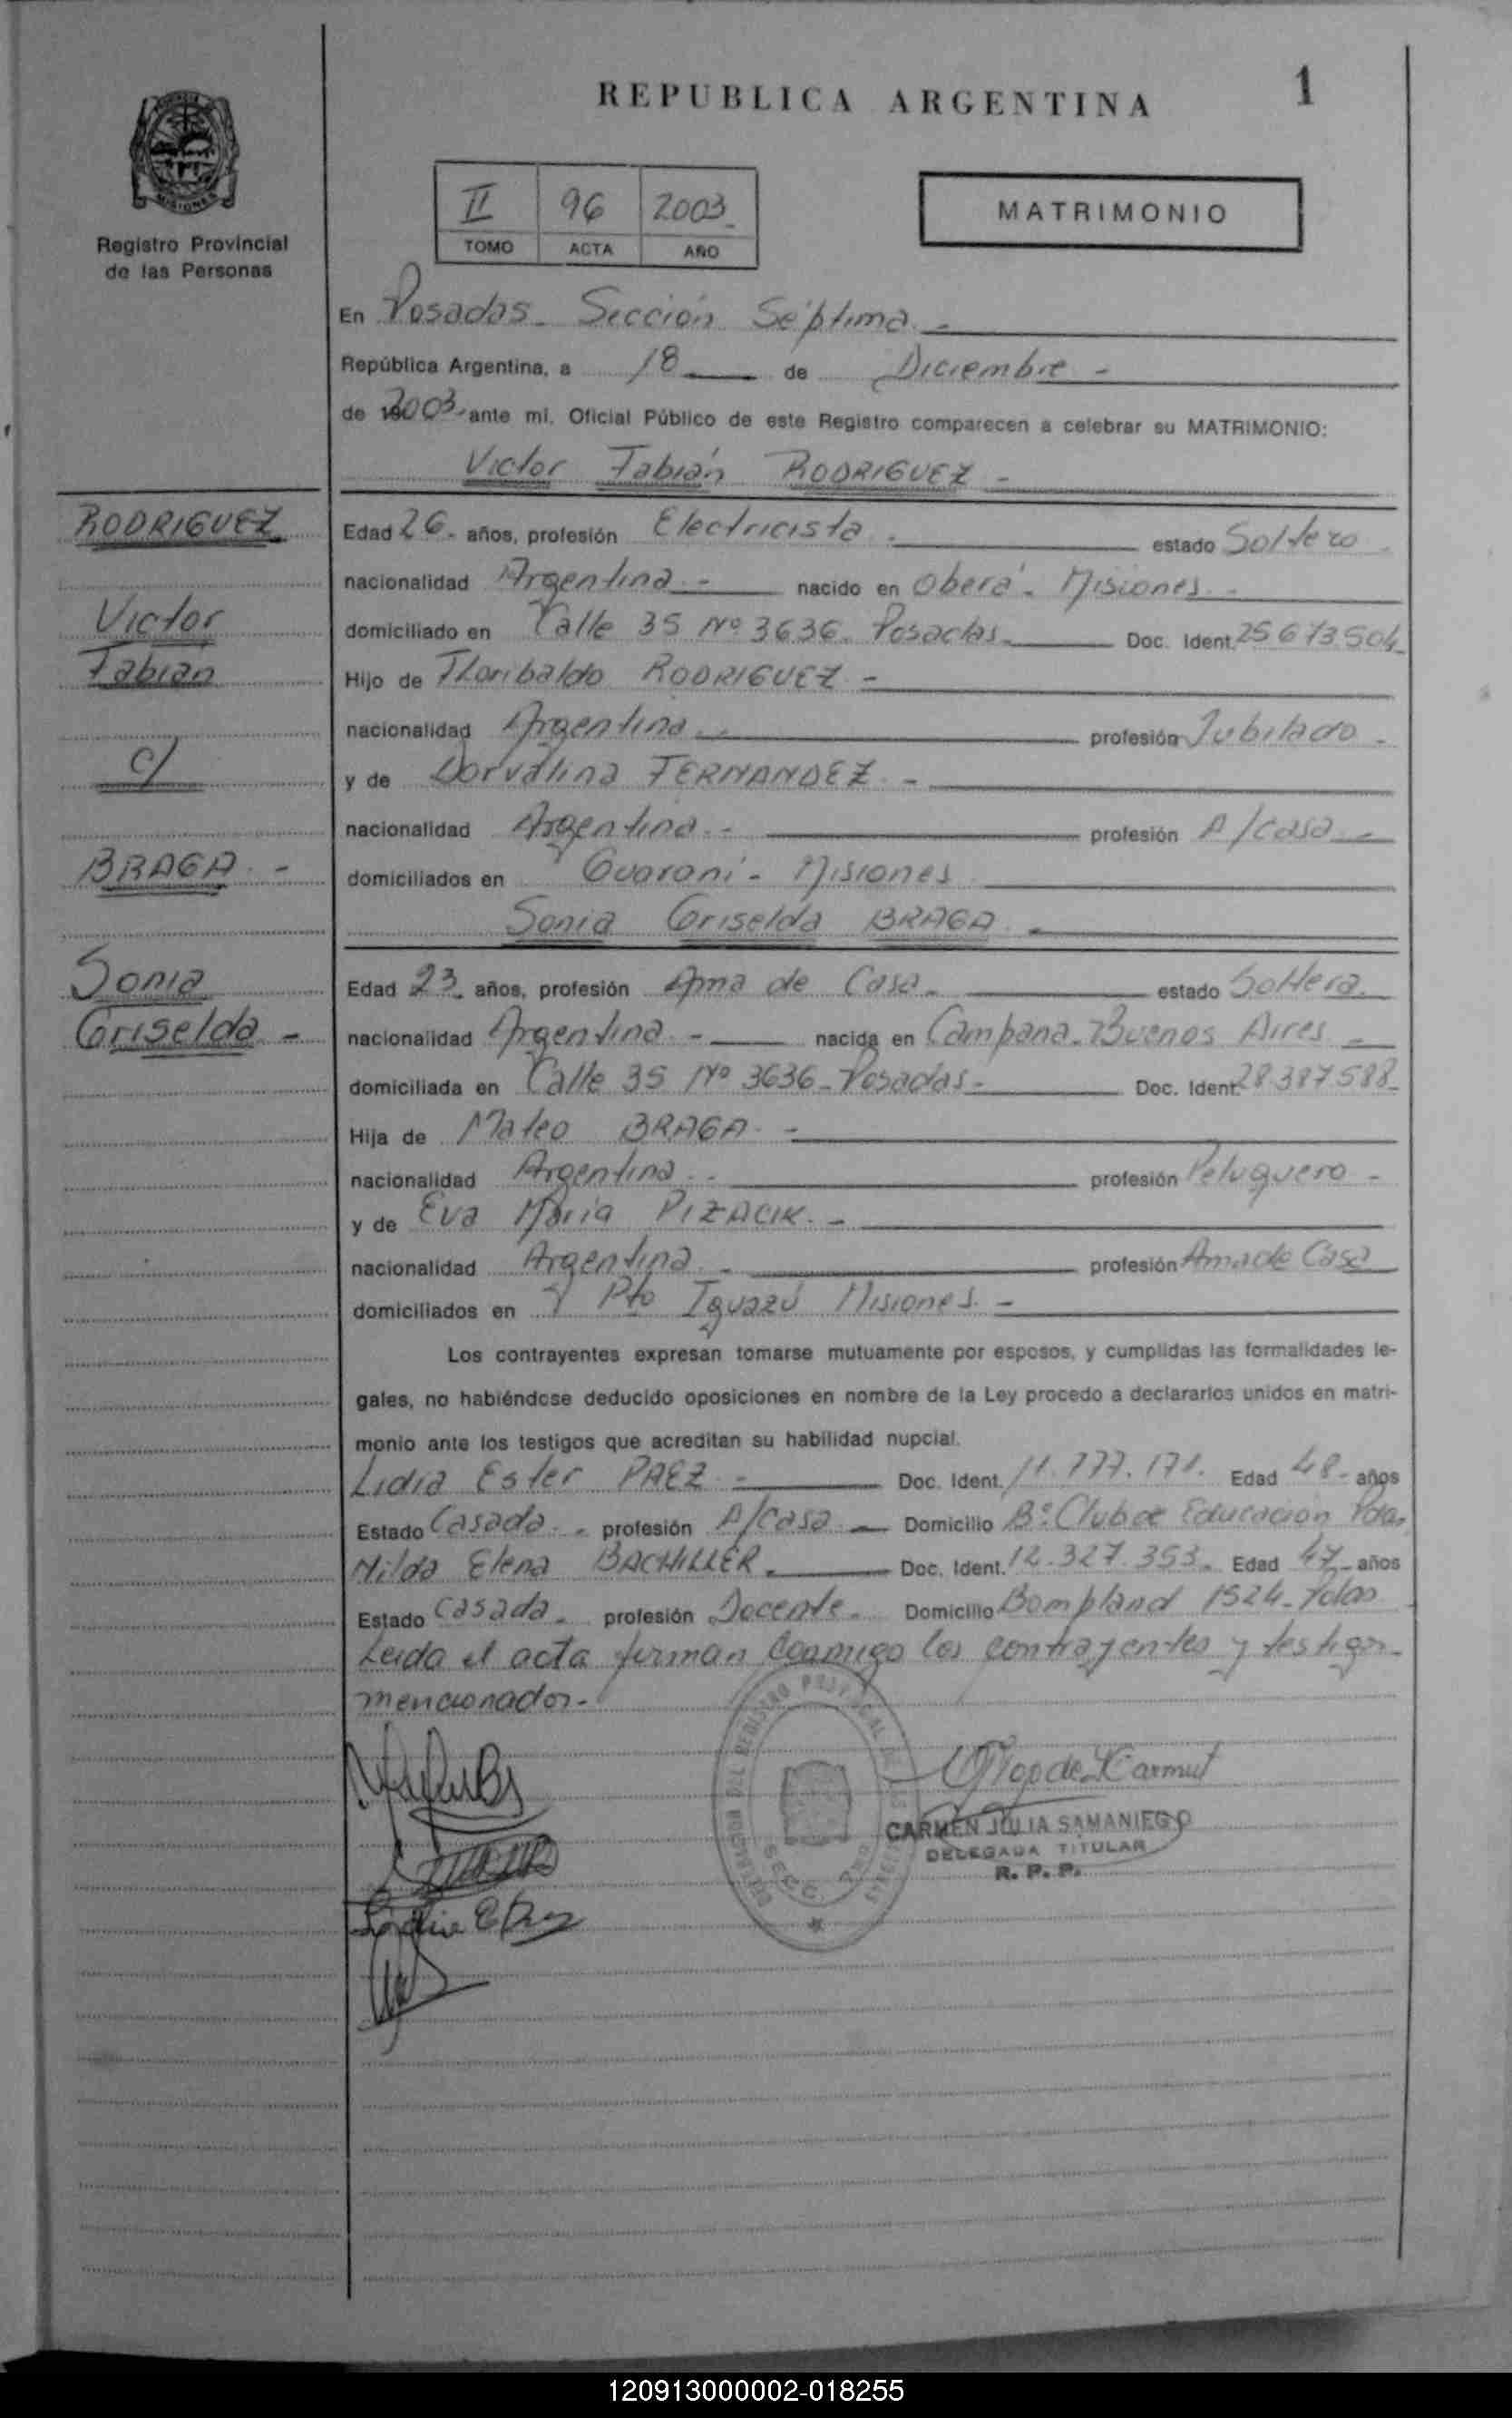 REPUBLICA ARGENTINA
1
MISIONES
Registro Provincial
de las Personas
II 96 2003
TOMO ACTA AÑO
MATRIMONIO
En Posadas - Sección Séptima -
República Argentina, a 18 de Diciembre -
de 2003- ante mí, Oficial Público de este Registro comparecen a celebrar su MATRIMONIO:
Victor Fabián RODRIGUEZ -
RODRIGUEZ
Victor
Fabián
c/
BRAGA -
Sonia
Griselda -
Edad 26- años, profesión Electricista - estado Soltero -
nacionalidad Argentina - nacido en Oberá - Misiones -
domiciliado en Calle 35 Nº 3636- Posadas- Doc. Ident. 25 673.504
Hijo de Floribaldo RODRIGUEZ -
nacionalidad Argentina - profesión Jubilado -
y de Dorvalina FERNANDEZ - 
nacionalidad Argentina - profesión A/casa -
domiciliados en Guaraní - Misiones
Sonia Griselda BRAGA -
Edad 23- años, profesión Ama de Casa - estado Soltera
nacionalidad Argentina - nacida en Campana - Buenos Aires -
domiciliada en Calle 35 Nº 3636 - Posadas - Doc. Ident. 28.387.588
Hija de Mateo BRAGA -
nacionalidad Argentina - profesión Peluquero -
y de Eva María PIZACIK -
nacionalidad Argentina - profesión Ama de Casa
domiciliados en Pto Iguazú Misiones -
Los contrayentes expresan tomarse mutuamente por esposos, y cumplidas las formalidades le-
gales, no habiéndose deducido oposiciones en nombre de la Ley procedo a declararlos unidos en matri-
monio ante los testigos que acreditan su habilidad nupcial.
Lidia Ester PAEZ - Doc. Ident. 11.777.171. Edad 48- años
Estado Casada - profesión A/casa - Domicilio Bº Club de Educación Pdas
Nilda Elena BACHILLER - Doc. Ident. 12.327.353- Edad 47- años
Estado Casada - profesión Docente - Domicilio Bompland 1524- Pdas
Leída el acta firman conmigo los contrayentes y testigos
mencionados -
CARMEN JULIA SAMANIEGO
DELEGADA TITULAR
R. P. P.
120913000002-018255